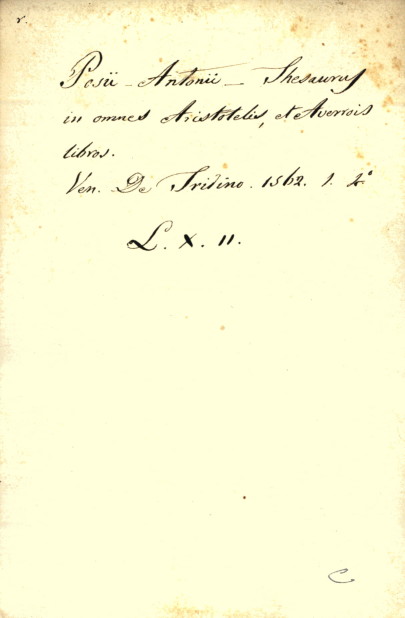 r.
Posii - Antonii - Thesaurus
in omnes Aristotelis, et Averrois
libros.
Ven. De Tridino. 1562. 1. 2°
L. X. 11.
C